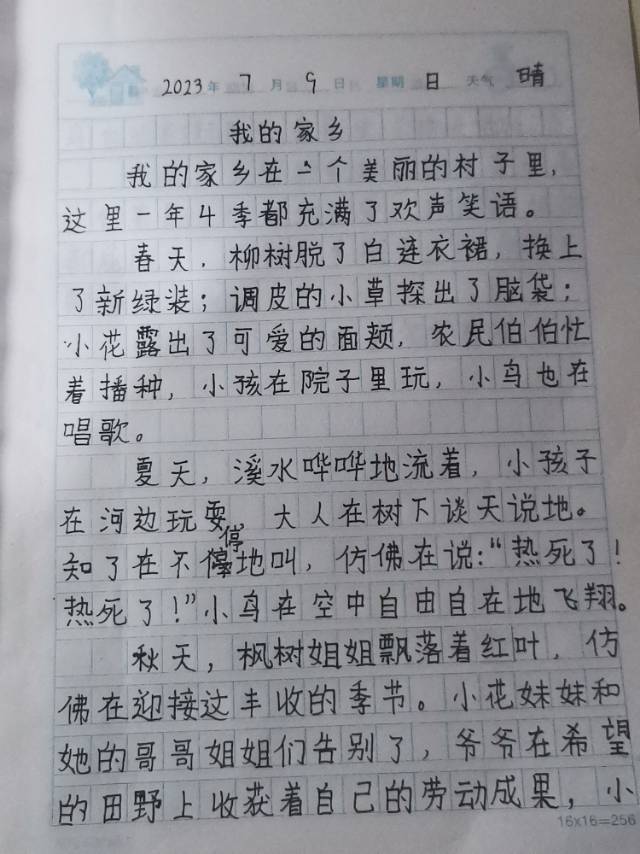 2023年 7月 9日 星期 日 天气 晴
我的家乡
我的家乡在一个美丽的村子里，
这里一年4季都充满了欢声笑语。
春天，柳树脱了白连衣裙，换上
了新绿装；调皮的小草探出了脑袋；
小花露出了可爱的面颊，农民伯伯忙
着播种，小孩在院子里玩，小鸟也在
唱歌。
夏天，溪水哗哗地流着，小孩子
在河边玩耍，大人在树下谈天说地。
知了在不停地叫，仿佛在说：“热死了！
热死了！”小鸟在空中自由自在地飞翔。
秋天，枫树姐姐飘落着红叶，仿
佛在迎接这丰收的季节。小花妹妹和
她的哥哥姐姐们告别了，爷爷在希望
的田野上收获着自己的劳动成果，小
16×16=256